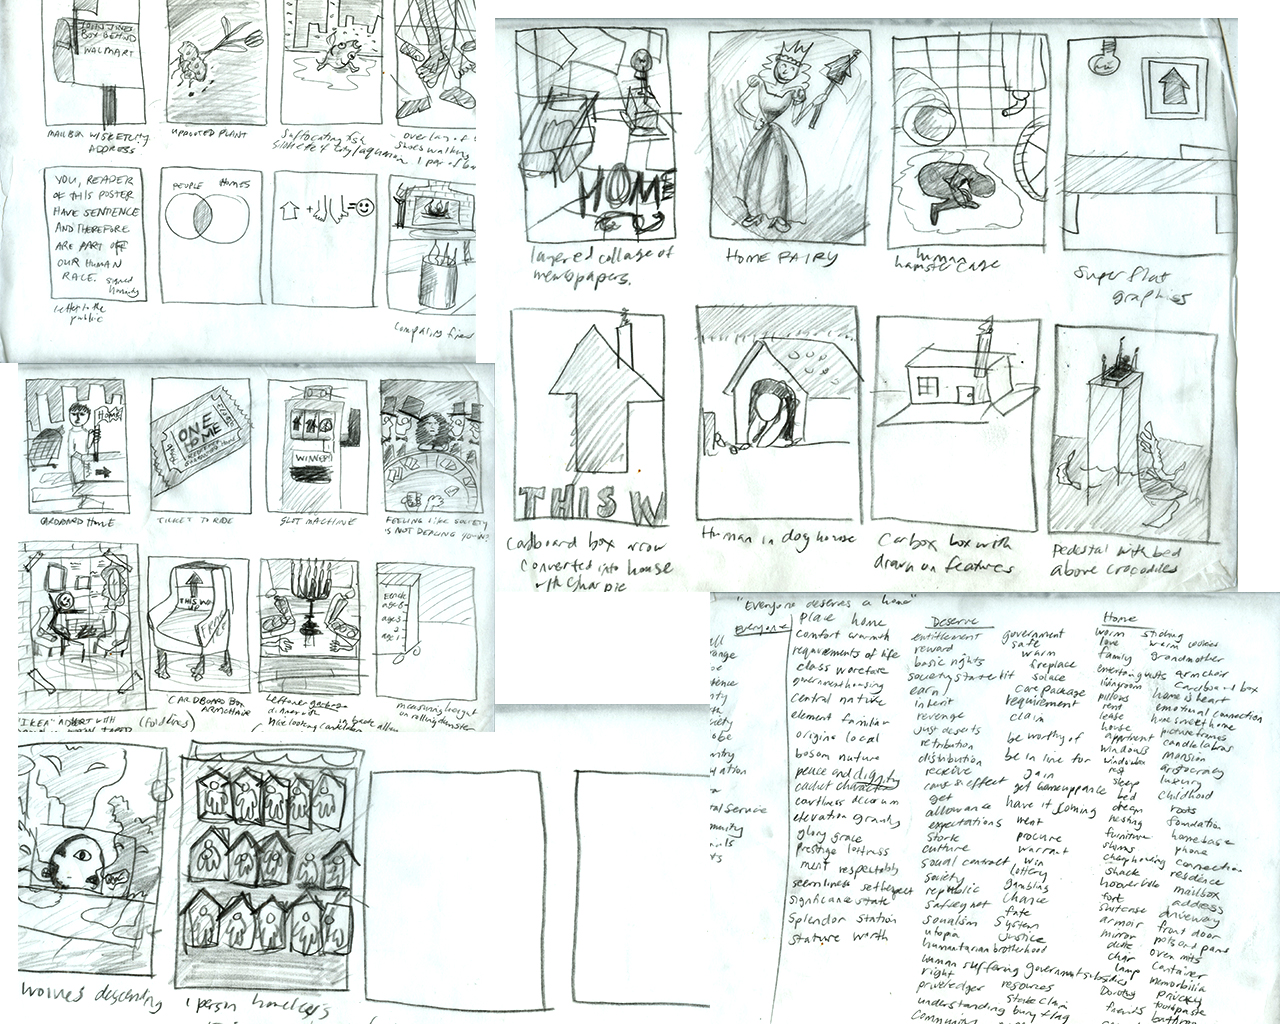 JOHN JONES
BOX BEHIND
WALMART
MAILBOX W/SKETCHY
ADDRESS
UPROOTED PLANT
Suffocating fish
overlay of
shoes walking
1 pair of
YOU, READER
OF THIS POSTER
HAVE SENTENCE
AND THEREFORE
ARE PART OF
OUR HUMAN
RACE. signed
humanity
letter to the
public
PEOPLE HOMES
Comparing fires
HOME
layered collage of
newspapers.
HOME FAIRY
human
hamster cage
Super flat
graphics
THIS W
Cardboard box arrow
converted into house
with sharpie
Human in dog house
Carbox box with
drawn on features
Pedestal with bed
above crocodiles
HOME
CARDBOARD HOME
ONE
HOME
TICKET TO RIDE
WINNER!
SLOT MACHINE
FEELING LIKE SOCIETY
IS NOT DEALING YOU IN?
"IKEA" ADVERT WITH
(Foldlines)
THIS WAY
UP
CARDBOARD BOX
ARMCHAIR
Leftover garbage
dinner with
nice looking candelabra
age 8
age 5
measuring height
on rolling dumpster
wolves descending
1 person homeless
"Everyone deserves a home"
Everyone
place home
comfort warmth
requirements of life
class warefare
government housing
central nature
element familiar
origins local
bosom nuture
peace and dignity
cachet character
earthiness decorum
elevation grandly
glory grace
prestige loftiness
merit respectably
seemliness self respect
significance state
splendor station
stature worth
Deserve
entitlement government
reward safe
basic rights warm
fireplace
society states it solace
earn care package
inherit requirement
revenge claim
just deserts
retribution be worthy of
distribution be in line for
receive gain
cause & effect get homeuppance
get
allowance have it coming
expectations merit
stork procure
culture warrant
social contract win
society lottery
republic gambling
safety net chance
socialism fate
utopia system
humanitarian brotherhood justice
human suffering government subsidies
right
priveledger resources
understanding stake claim
bury flag
community
Home
worm sliding
love warm cookies
family grandmother
entertaining guests armchair
livingroom cardboard box
pillows home is heart
rent emotional connection
lease home sweet home
house pictureframes
appartment candelabras
windows mansion
windowbox aristocracy
rest luxury
sleep childhood
bed
dream roots
nesting foundation
furniture homebase
slums phone
cheap housing connection
shack residence
hooverville mailbox
fort address
suitcase driveway
armoir front door
mirror pots and pans
desk oven mits
chair container
lamp memorbilia
Dorothy privacy
friends toothpaste
bathroom